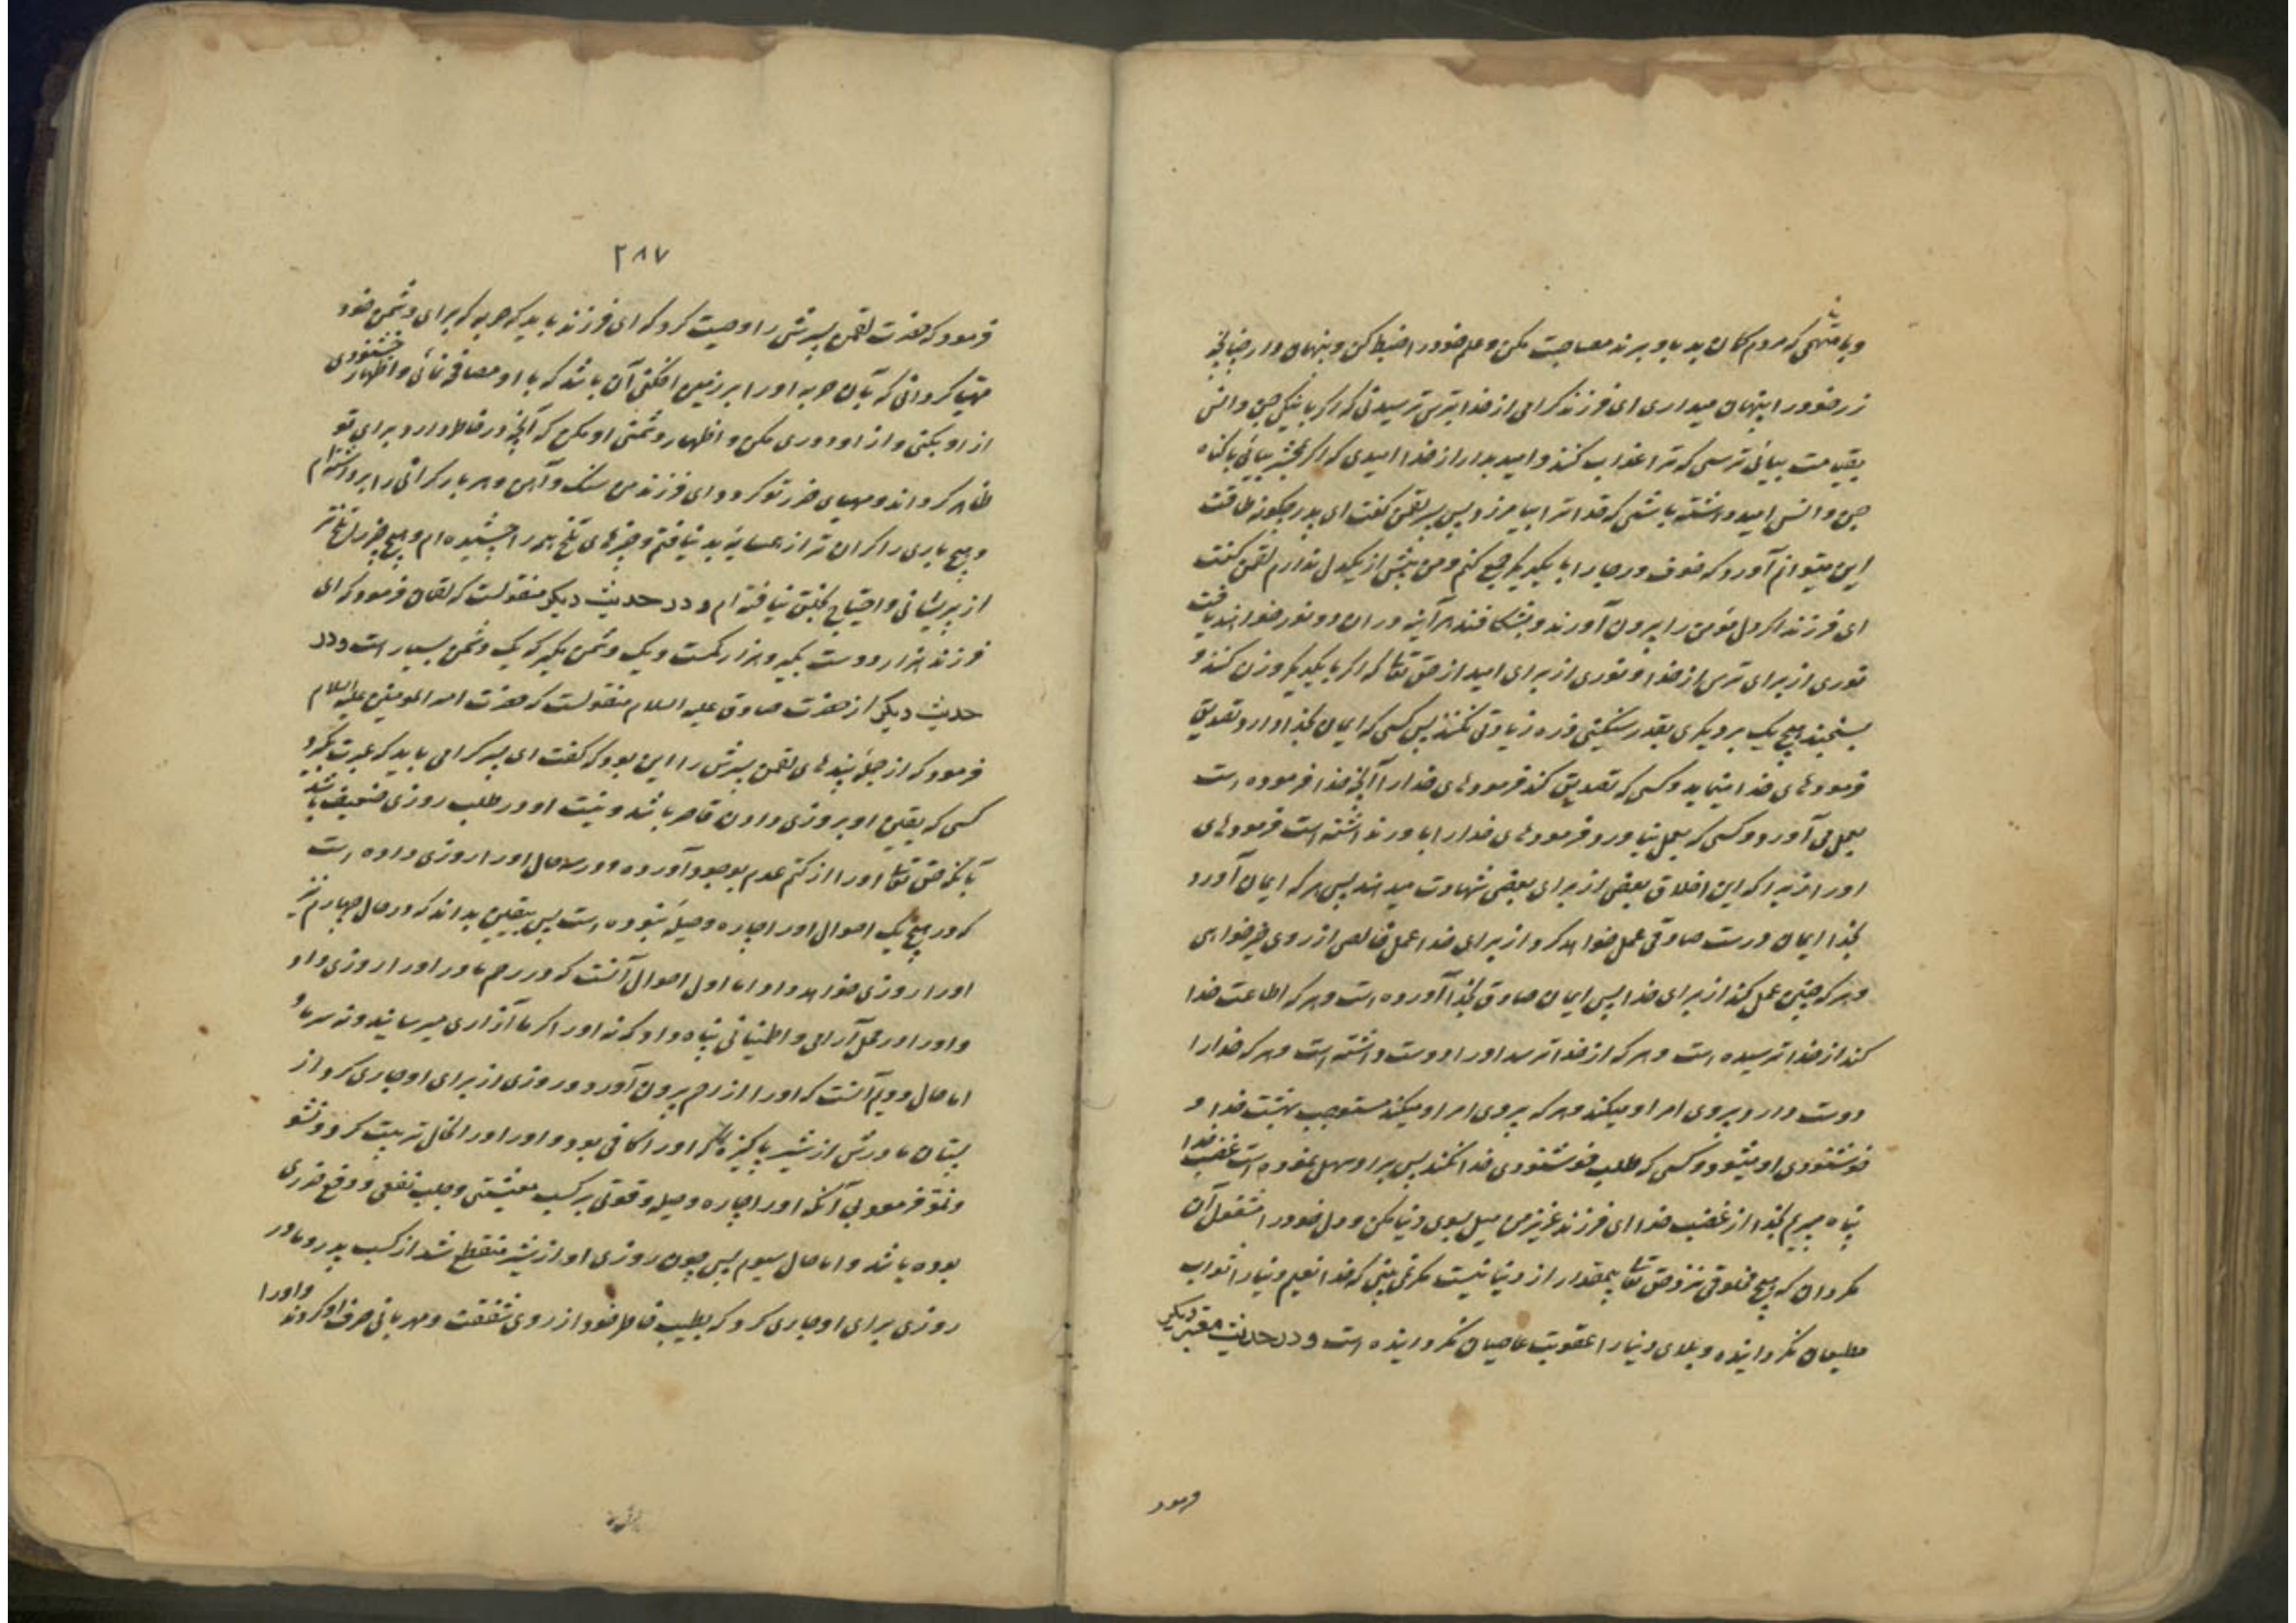 و با متهمی که مردم کمان بد باو برند مصاحبت مکن و علم خود را ضبط کن و پنهان دار چنانچه
زر خود را پنهان میداری ای فرزند کرامی از خدا بترس ترسیدنی که اکر با نیکی جن و انس
بقیامت بیائی ترسی که ترا عذاب کند و امید بدار از خدا امیدی که اکر بمحشر بیائی با کناه
جن و انس امید داشته باشی که خدا ترا بیامرزد پس پسر لقمن کفت ای پدر چکونه طاقت
این میتوانم آورد که خوف و رجا را با یکدیکر جمع کنم و من بیش از یکدل ندارم لقمن کفت
ای فرزند اکر دل مؤمن را بیرون آورند و بشکافند هر آینه در ان دو نور خواهند یافت
نوری از برای ترس از خدا و نوری از برای امید از حق تعا که اکر با یکدیکر وزن کنند و
بسنجند هیچ یک بر دیکری بقدر سنکینی ذره زیادتی نکنند پس کسی که ایمان بخدا دارد تصدیق
فرمودهای خدا مینماید و کسی که تصدیق کند فرمودهای خدا را آنچه خدا فرموده است
بعمل می آورد و کسی که بعمل نیاورد فرمودهای خدا را باور نداشته است فرمودهای
او را زیرا که این اخلاق بعضی از برای بعضی شهادت میدهند پس هر که ایمان آورد
بخدا ایمان درست صادقی عمل خواهد کرد از برای خدا عمل خالصی از روی خیرخواهی
و هر که چنین عمل کند از برای خدا پس ایمان صادق بخدا آورده است و هر که اطاعت خدا
کند از خدا ترسیده است و هر که از خدا ترسد او را دوست داشته است و هر که خدا را
دوست دارد پیروی امر او میکند و هر که پیروی امر او میکند مستوجب بهشت خدا و
خوشنودی او میشود و کسی که طلب خوشنودی خدا نکند پس بر او سهل نموده است غضب خدا
پناه میبریم بخدا از غضب خدا ای فرزند عزیز من میل بسوی دنیا مکن و دل خود را مشغول آن
مکردان که هیچ مخلوقی نزد حق تعا بیمقدار از دنیا نیست مکر نمی بینی که خدا نعیم دنیا را ثواب
مطیعان نکردانیده و بلای دنیا را عقوبت عاصیان نکردانیده است و در حدیث معتبر دیکر
فرمود
۲۸۷
فرمود که حضرت لقمن پسرش را وصیت کرد که ای فرزند باید که حربه که برای دشمن خود
مهیا کردانی که بآن حربه او را بر زمین افکنی آن باشد که با او مصافحه نمائی و اظهار خشنودی
از او بکنی و از او دوری مکن و اظهار دشمنی او مکن که آنچه در خاطر دارد برای تو
ظاهر کرداند و مهیای ضرر تو کردد ای فرزند من سنک و آهن و هر بار کرانی را برداشته ام
و هیچ باری را کران تر از همسایه بد نیافتم و چیزهای تلخ همه را چشیده ام و هیچ چیز را تلختر
از پریشانی و احتیاج بخلق نیافته ام و در حدیث دیکر منقولست که لقمان فرمود که ای
فرزند هزار دوست بکیر و هزار کمست و یک دشمن مکیر که یک دشمن بسیار است و در
حدیث دیکر از حضرت صادق علیه السلام منقولست که حضرت امیر المومنین علیه السلام
فرمود که از جمله پندهای لقمن پسرش را این بود که کفت ای پسر کرامی باید که عبرت بکیرد
کسی که یقین او بروزی دادن قاصر باشد و نیت او در طلب روزی ضعیف باشد
بآنکه حق تعا او را از کتم عدم بوجود آورده و در سه حال او را روزی داده است
که در هیچ یک احوال او را چاره و حیلهٔ نبوده است پس بیقین بداند که در حال چهارم نیز
او را روزی خواهد داد اما اول احوال آنست که در رحم مادر او را روزی داد
و او را در محل آرامی و اطمینانی پناه داد که نه او را کرما آزاری میرسانید و نه سرما و
اما حال دویم آنست که او را از رحم بیرون آورد و روزی از برای او جاری کرد از
پستان مادرش از شیر پاکیزه که او را کافی بود و او را در انحال تربیت کرد و نشو
و نمو فرمود بی آنکه او را چاره و حیله و قوتی بر کسب معیشتی و جلب نفعی و دفع ضرری
بوده باشد و اما حال سیوم پس چون روزی او از شیر منقطع شد از کسب پدر و مادر
روزی برای او جاری کرد که بطیب خاطر خود از روی شفقت و مهربانی صرف او کردند و او را